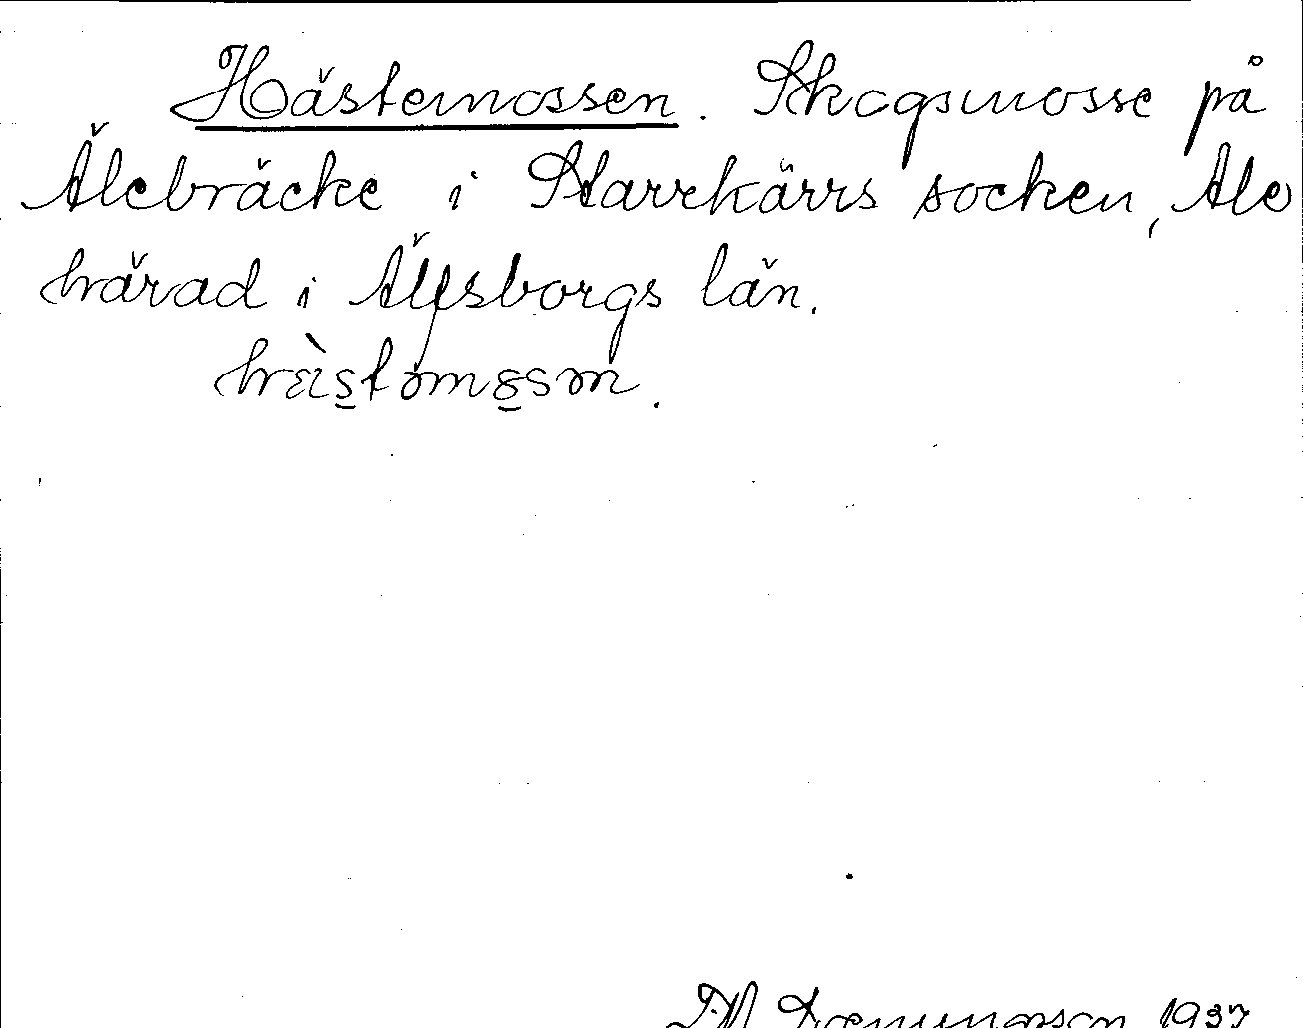 Hästemossen. Skogsmosse på
Älebräcke i Starrkärrs socken, Ale
härad i Älfsborgs län.
hæ̀stəmɷsən.
1937